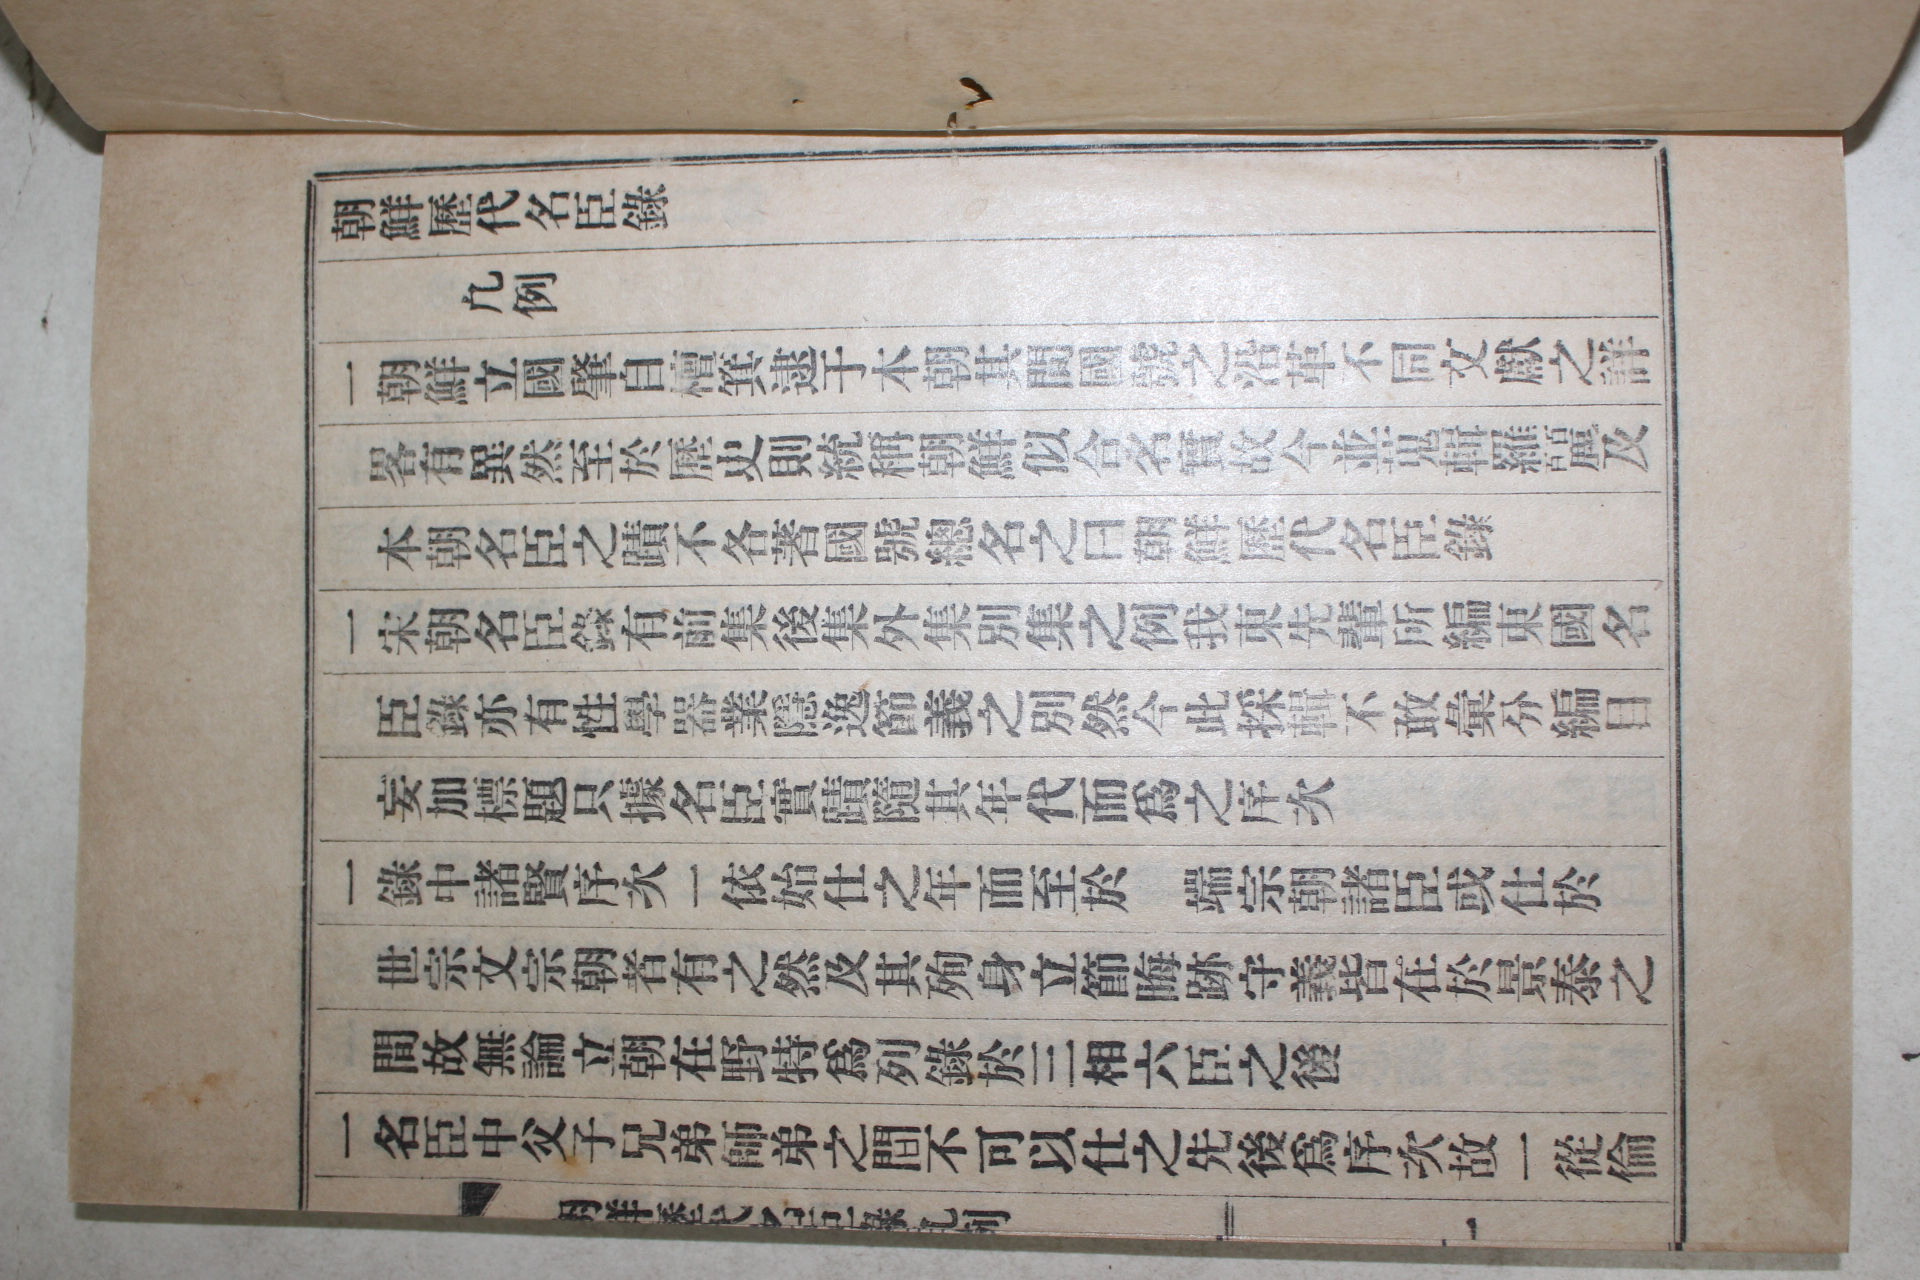 朝鮮歷代名臣錄
凡例
一朝鮮立國肇自檀箕逮于本朝其間國號之沿革不同文獻之詳
畧有異然至於歷史則統稱朝鮮似合名實故今並蒐輯羅百百麗及
本朝名臣之蹟不各著國號總名之曰朝鮮歷代名臣錄
一宋朝名臣錄有前集後集外集別集之例我東先輩所編東國名
臣錄亦有性學器業隱逸節義之別然今此採輯不敢彙分編目
妄加標題只據名臣實蹟隨其年代而爲之序次
一錄中諸賢序次一依始仕之年而至於 端宗朝諸臣或仕於
世宗文宗朝者有之然及其殉身立節晦跡守義皆在於景泰之
間故無論立朝在野特爲列錄於三相六臣之後
一名臣中父子兄弟師弟之間不可以仕之先後爲序次故一從倫
朝鮮歷代名臣錄凡例 一